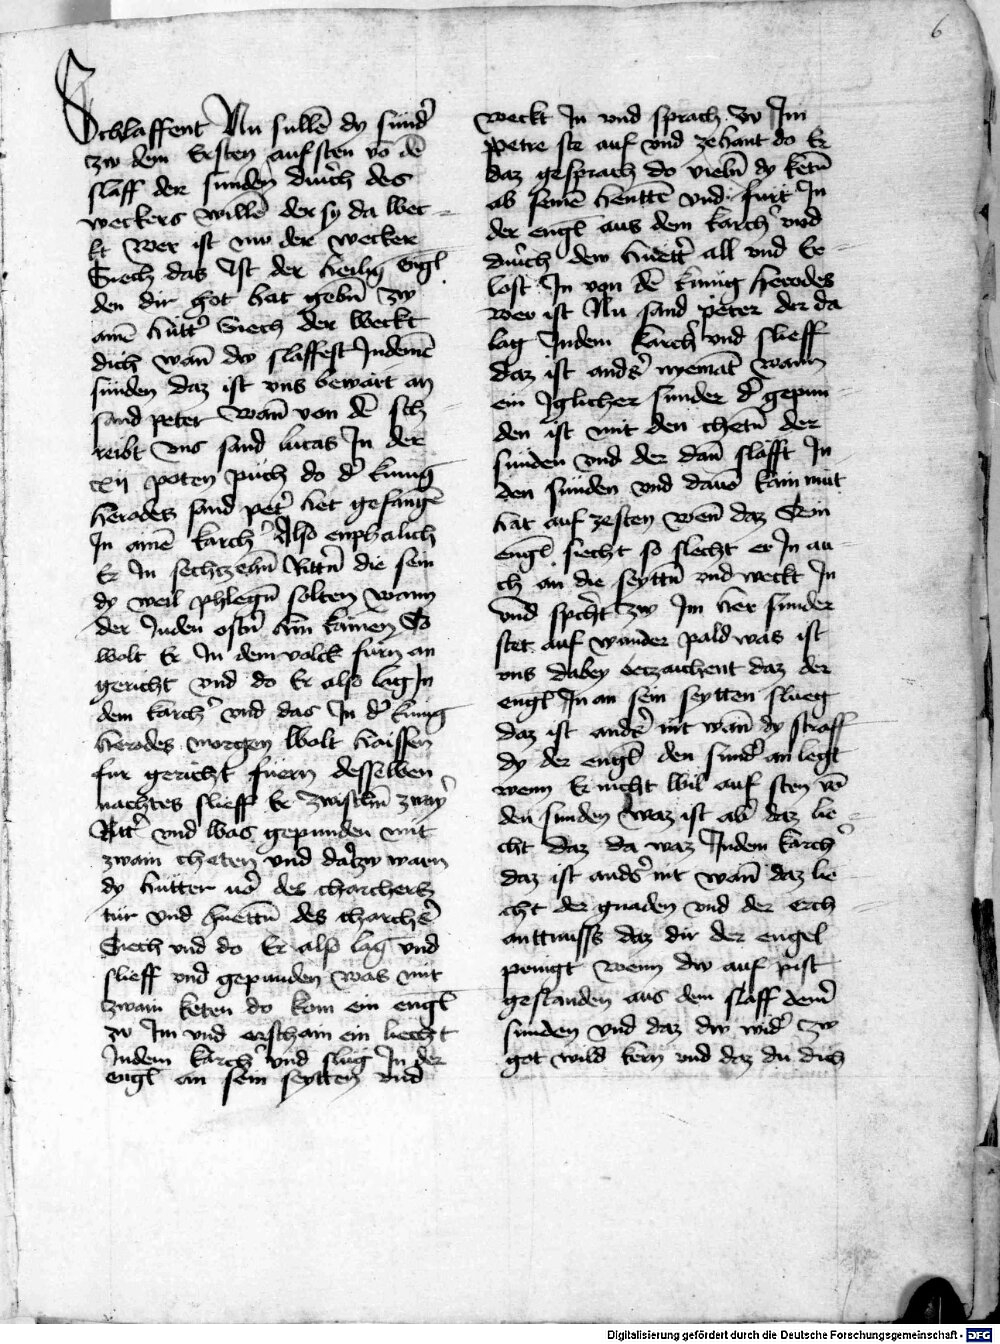 6
Schlaffent Nu sullē dy sünd᷑
zw dem Ersten auf sten vō dē
slaff der sunden durch des
weckers willē der sy da wec-
kt wer ist nw der wecker
Siech das Ist der heilig engl
den dir got hat gebn̄ zw
aīnē hütt᷑ Siech der weckt
dich wañ dw slaffest Indenē
sünden daz ist vns bewärt an
sand peter wañ von dē sch
reibt vns sand lucas In der
xij poten püch do d᷑ kunig
herodes sand pet᷑ het gefangē
In aīnē karch᷑ Also enphalich
Er In sechtzehn̄ Rittn̄ die sein
dy weil phlegn̄ solten wann
der Juden ostn̄ hin kämen So
wolt Er In dem volck fürn an
gericht vnd do Er also lag In
dem karch᷑ vnd das In d᷑ kunig
herodes morgen wolt haissen
fur gericht füern desselben
nachtes slieff Er zwischn̄ zway᷑
Ritt᷑ vnd was gepunden mit
zwain cheten vnd datzw warn
dy hütter vo᷑ des charchers
tür vnd huettn̄ des charch᷑s
Siech vnd do Er also lag vnd
slieff vnd gepunden was mit
zwain keten do kom ein engl
zw Im vnd erscham ein liecht
Indem karch᷑ vnd slug In der
engl an sein seytten vnd
weckt In vnd sprach zw Im
Petre ste auf vnd zehant do Er
daz gesprach do vieln̄ dy ketn̄
ab seinē henttē vnd fürt In
der engl aus dem karch᷑ vnd
durch dew huett᷑ all vnd Er
lost In von dē kunig herodes
wer ist Nu sand peter der da
lag Indem karch᷑ vnd slieff
daz ist and᷑s nyemāt wann
ein Iglicher sunder d᷑ gepun
den ist mit den chetn̄ der
sunden vnd der dañ slafft In
den sünden vnd dauō kain müt
hat auf zesten wen̄ daz Sein
engl siecht so slecht er In au
ch an die seyttn̄ vnd weckt In
vnd spricht zw Im her sunder
stet auf wander pald was ist
vns dabey betzaichent daz der
engl In an sein seytten slueg
daz ist and᷑s nit wañ dy straff
dy der engl den sund᷑ an legt
wenn Er nicht wil auf sten vō
den sunden waz ist ab᷑ daz lie
cht daz da waz Indem karch᷑
daz ist and᷑s nit wañ daz lie
cht der gnaden vnd der erch
anttnuss daz dir der engel
pringt wenn dw auf pist
gestanden aus dem slaff dein᷑
sunden vnd daz dw wid᷑ zw
got wild kern vnd daz du dich
Digitalisierung gefördert durch die Deutsche Forschungsgemeinschaft - DFG